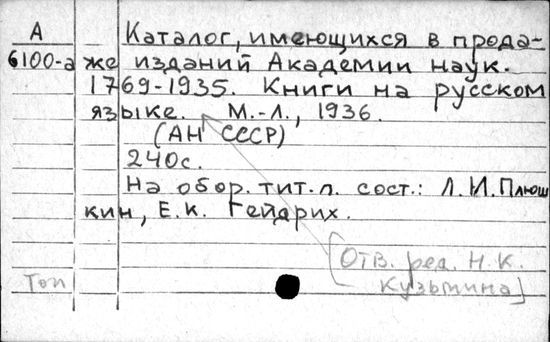 А
6100-а
Каталог, имеющихся в прода-
же изданий Академии наук.
1769-1935. Книги на русском
языке. М.-Л., 1936.
(АН СССР)
240с.
На обор. тит. л. сост.: Л.И.Плюш
кин, Е.К. Гейдрих.
[Отв. ред. Н.К.
Кузьмина]
Топ